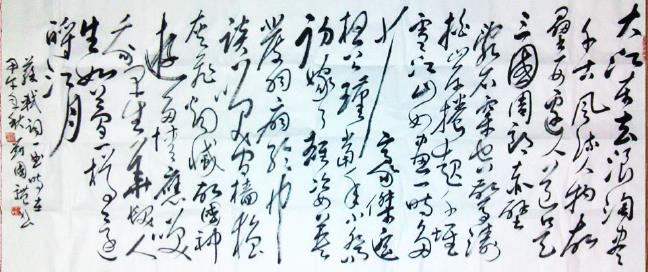 大江东去浪淘尽
千古风流人物故
垒西边人道是
三國周郎赤壁
乱石穿空惊涛
拍岸捲起千堆
雪江山如画一时多
少豪傑遥
想公瑾當年小乔
初嫁了雄姿英
發羽扇纶巾
谈笑间檣櫓
灰飛烟滅故國神
遊多情應笑
我早生華髮人
生如夢一樽還
酹江月
蘇軾詞一首
甲午之秋